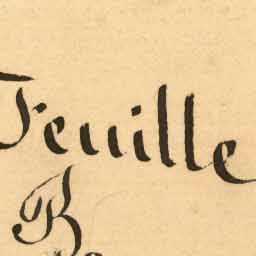 Feuille
B